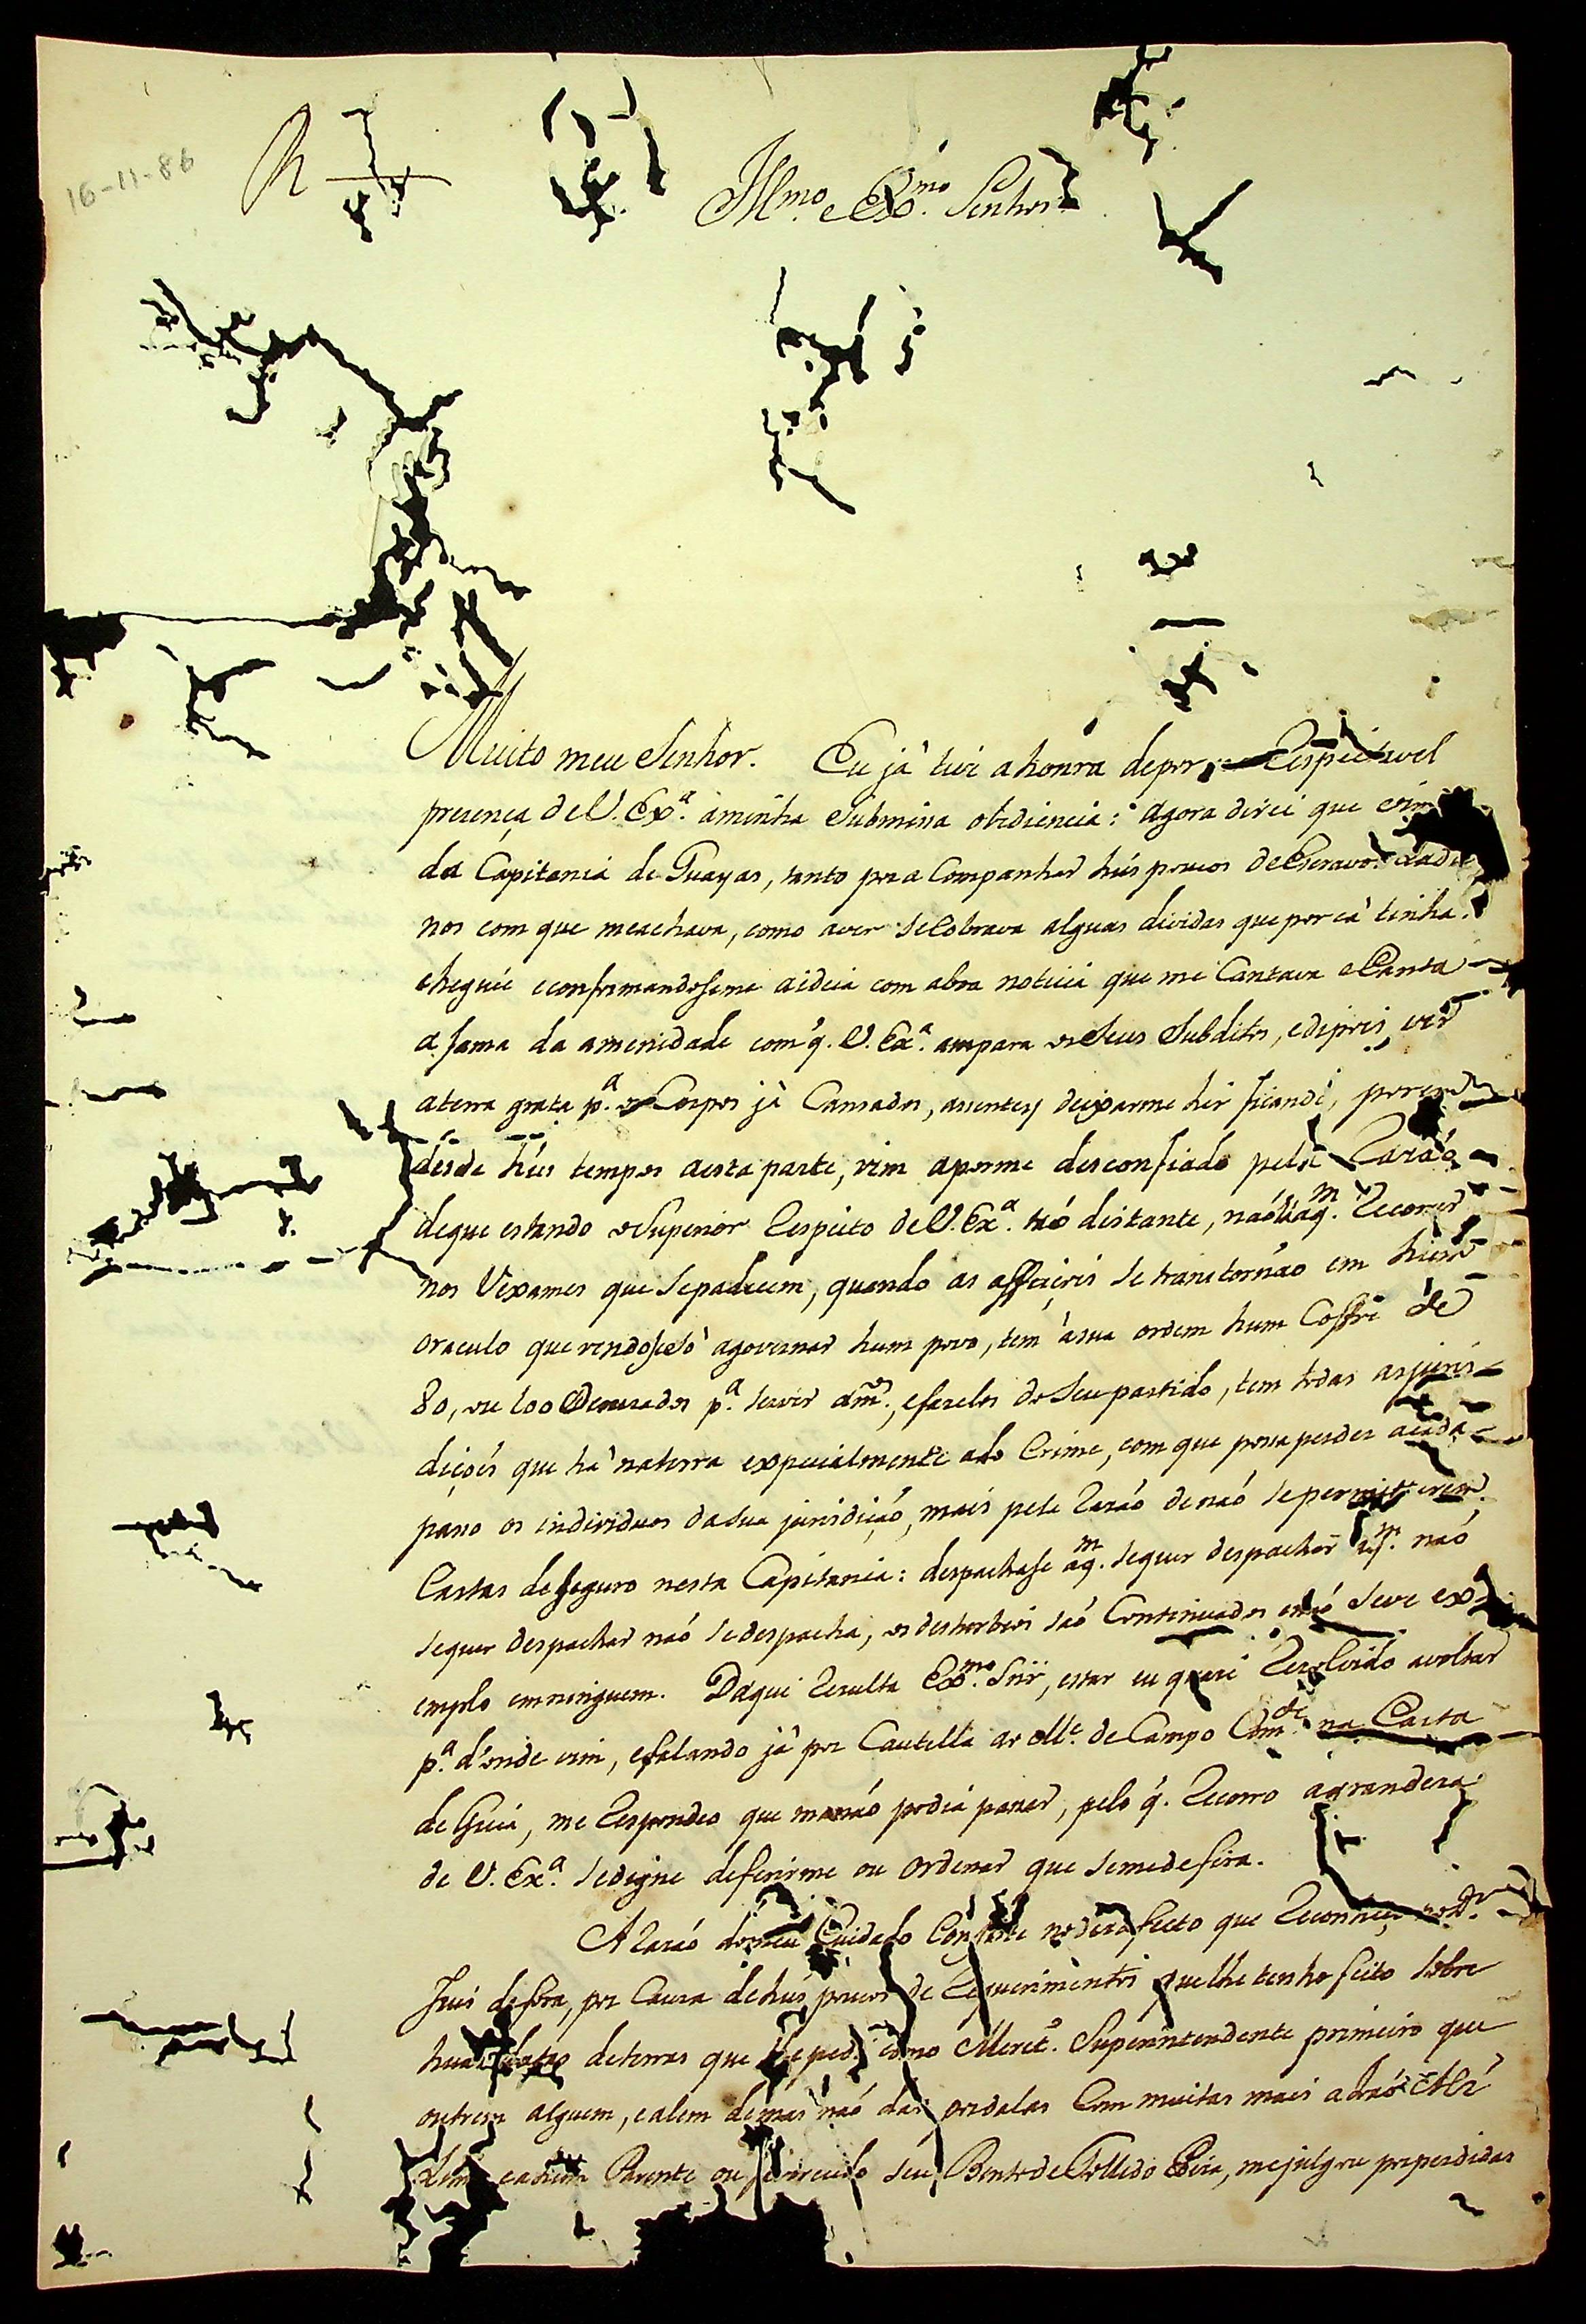 16-11-86
R
Ill.mo e Ex.mo Senhor
Muito meu Senhor. Eu já tive a honra depor Respeitavel
prezença de V. Ex.a aminha submissa obdiencia: agora direi que vim
da Capitania de Guayas, tanto por a Companhar hús poucos de Escravos
nos com que meachava, como aver se Cobrava alguas dividas que por cá tinha.
cheguei econfirmandoseme aideia com aboa noticia que me Cantava eCanta
a fama da amenidade com q. V. Ex.a ampara os Seus Subditos, edepois ver
aterra grata p.a os Corpos já Cansados, assentey deixarme hir ficando, porem
desde hús tempos aesta parte, vim aporme desconfiado pela Razaó
deque estando o Superior Respeito de V. Ex.a taó distante, naó há q.m Recorrer
nos Vexames que sepadecem, quando as se transtornáo em hum
oraculo que vendosesó agovernar hum povo, tem ásua ordem hum Coffre de
80, ou 100 p.a servir , efazelos do Seu partido, tem todas asjuris
diçoés que há naterra expecialmente ado Crime, com que possa perder acada
passo os individuos dasua jurisdiçaó, mais pela Razaó denaó sepermitirem
Cartas deSeguro nesta Capitania: despachase aq.m sequer despachar q.m naó
sequer despachar naó sedespacha, os desturbios saó Continuados enaó serve ex
emplo emninguem. Daqui Rezulta Ex.mo Snr, estar eu quazi Rezolvido avoltar
p.a d'onde vim, efalando já por Cautella ao M.e de Campo Com.de na Carta
de Guia, me Respondeo que ma naó podia passar, pelo q. Recorro agrandeza
de V. Ex.a sedigne deferirme ou ordenar que semedefira.
A Razaó domeu Cuidado Consiste no dezafecto que Reconheço no D.r
Juis defóra, por Cauza dehús poucos de Requerimentos quelhe tenho feito sobre
hua deterras que lhe pedi como Superintendente primeiro que
outrem alguem, ealem demas naó dar
Parente ou seu Bento de Tolledo , mejulgou por perdidas